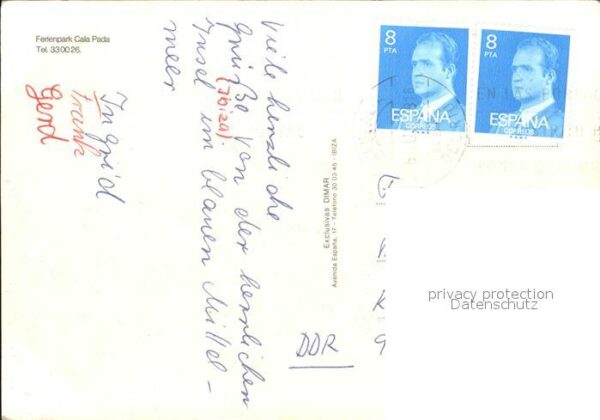 Ferienpark Cala Pada
Tel. 330026.
Viele herzliche
Grüße von der herrlichen
(Ibiza)
Insel im blauen Mittel-
meer
Ingrid
Frank
Gerd
Exclusivas DIMAR
Avenida España, 17 - Telefono 30 03 46 - IBIZA
8
PTA
ESPAÑA
CORREOS
8
PTA
ESPAÑA
CORREOS
DDR
privacy protection
Datenschutz